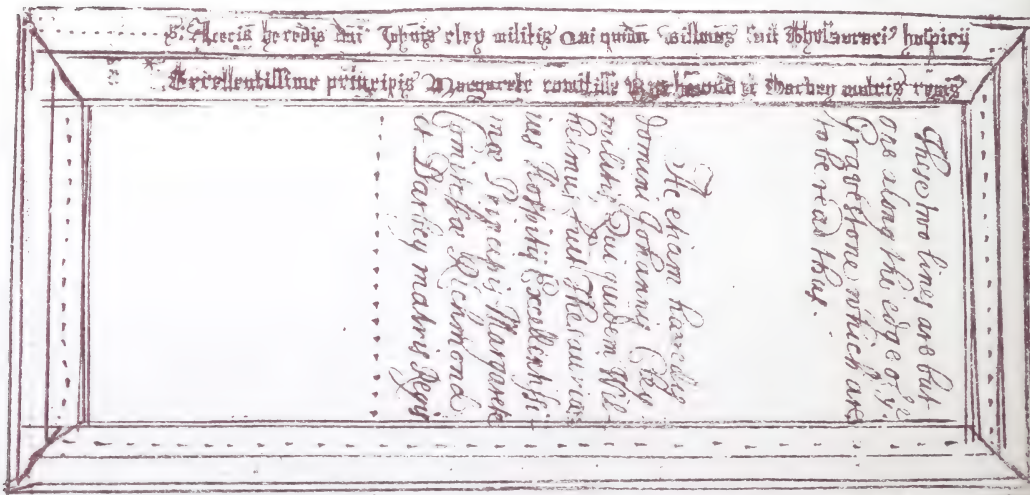 heredis dni Johnis cley militis Qui quidm Willms fuit Thesaurari' hospicii
Excellentissime principis Margarete comitisse Richmond et Darbey matris regis
These two lines are but-
one along the edge of ye
Gravestone which are
to be read thus.
Ac etiam hæredis
domini Johannis Cley
militis, Qui quidem Wil-
helmus fuit Thesaurari-
us Hospitij Excellentissi-
mæ Prīcipis Margaretæ
Comitissæ Richmond
et Darbey matris Regis